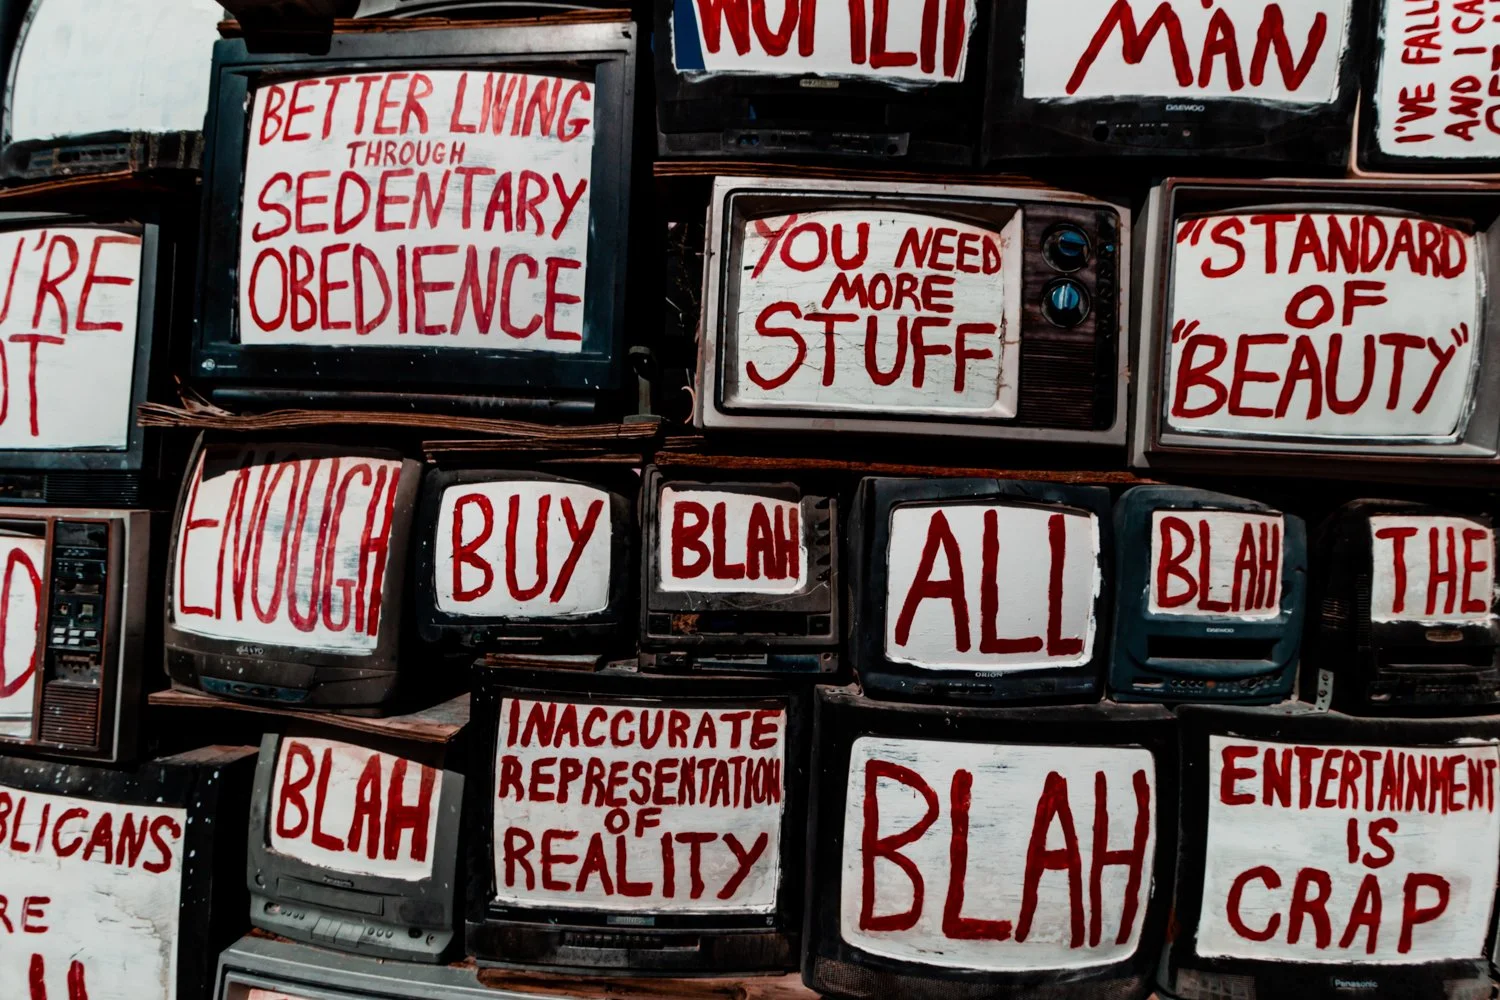 MAN
DAEWOO
I'VE FALL
AND I CA
BETTER LIVING
THROUGH
SEDENTARY
OBEDIENCE
YOU NEED
MORE
STUFF
"STANDARD
OF
"BEAUTY"
U'RE
OT
ENOUGH
BUY
BLAH
ALL
ORION
BLAH
DAEWOO
THE
D
BLICANS'
RE
BLAH
Panasonic
INACCURATE
REPRESENTATION
OF
REALITY
BLAH
ENTERTAINMENT
IS
CRAP
Panasonic